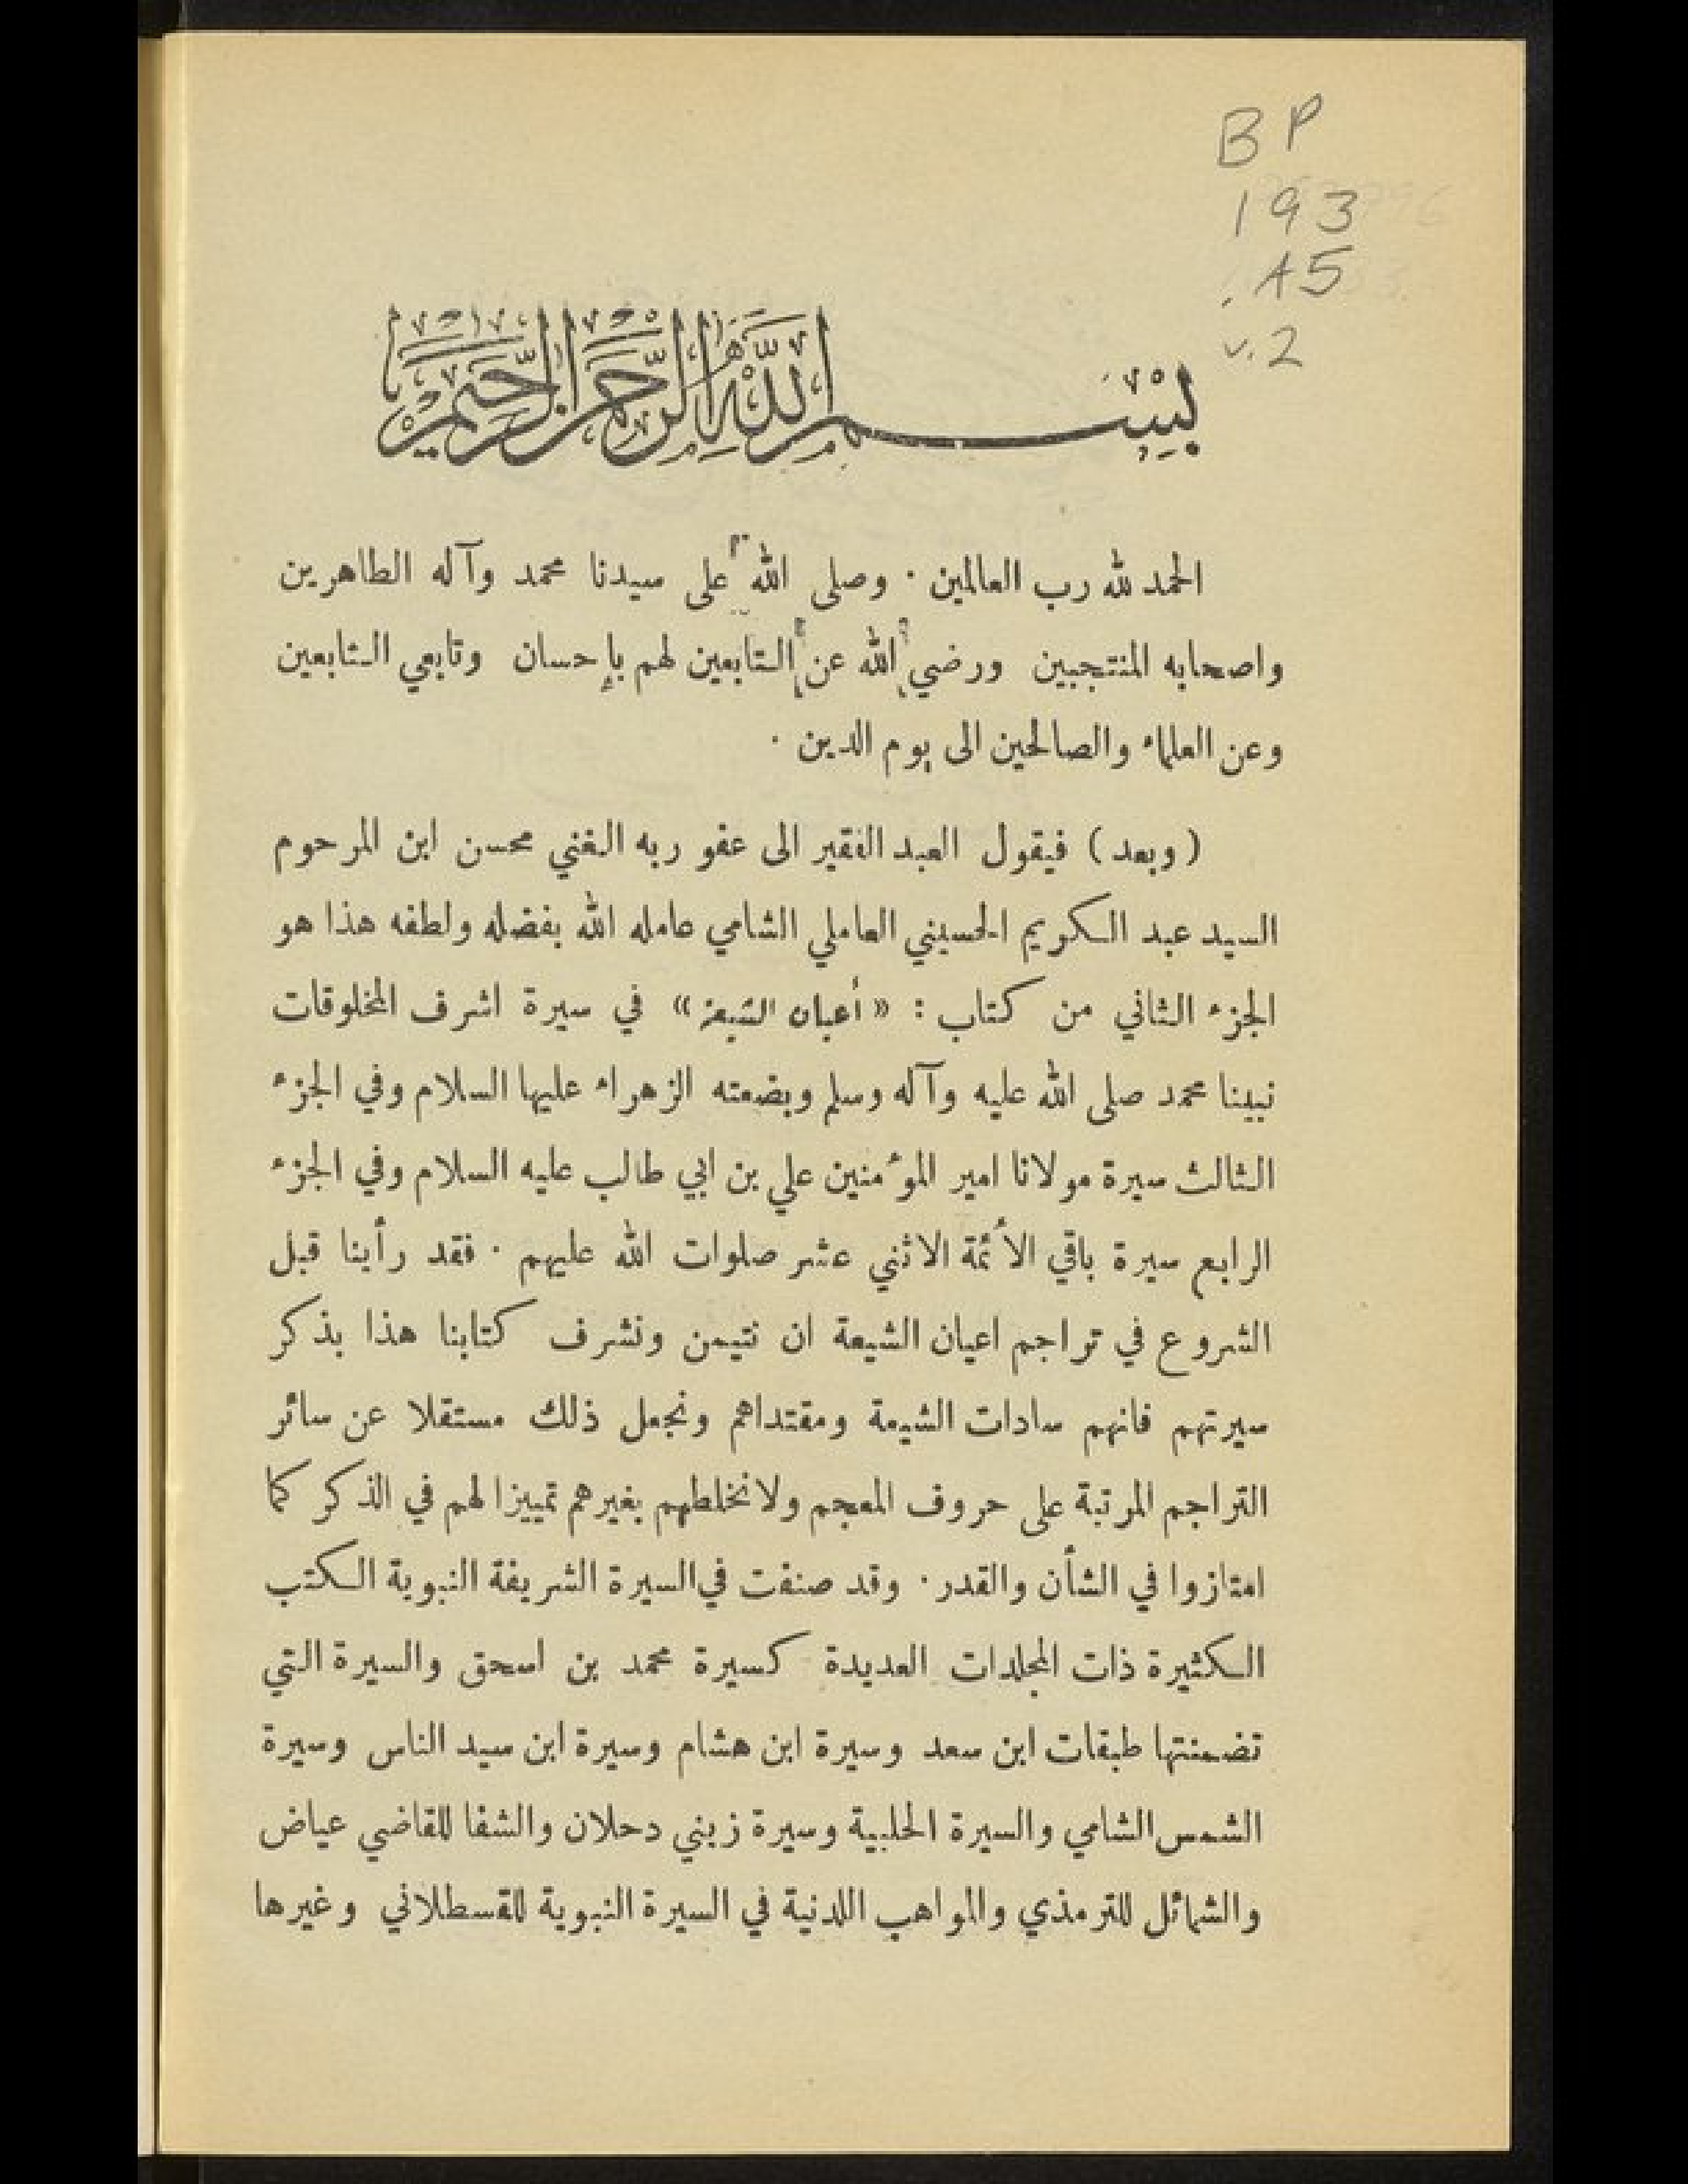 BP
193
.A5
v.2
بِسْمِ اللَّهِ الرَّحْمٰنِ الرَّحِيمِ
الحمد لله رب العالمين . وصلى الله على سيدنا محمد وآله الطاهرين
واصحابه المنتجبين ورضي الله عن التابعين لهم بإحسان وتابعي التابعين
وعن العلماء والصالحين الى يوم الدين .
( وبعد ) فيقول العبد الفقير الى عفو ربه الغني محسن ابن المرحوم
السيد عبد الكريم الحسيني العاملي الشامي عامله الله بفضله ولطفه هذا هو
الجزء الثاني من كتاب : « أعيان الشيعة » في سيرة اشرف المخلوقات
نبينا محمد صلى الله عليه وآله وسلم وبضعته الزهراء عليها السلام وفي الجزء
الثالث سيرة مولانا امير المؤمنين علي بن ابي طالب عليه السلام وفي الجزء
الرابع سيرة باقي الأئمة الاثني عشر صلوات الله عليهم . فقد رأينا قبل
الشروع في تراجم اعيان الشيعة ان نتيمن ونشرف كتابنا هذا بذكر
سيرتهم فانهم سادات الشيعة ومقتداهم ونجعل ذلك مستقلا عن سائر
التراجم المرتبة على حروف المعجم ولا نخلطهم بغيرهم تمييزا لهم في الذكر كما
امتازوا في الشأن والقدر . وقد صنفت في السيرة الشريفة النبوية الكتب
الكثيرة ذات المجلدات العديدة كسيرة محمد بن اسحق والسيرة التي
تضمنتها طبقات ابن سعد وسيرة ابن هشام وسيرة ابن سيد الناس وسيرة
الشمس الشامي والسيرة الحلبية وسيرة زيني دحلان والشفا للقاضي عياض
والشمائل للترمذي والمواهب اللدنية في السيرة النبوية للقسطلاني وغيرها